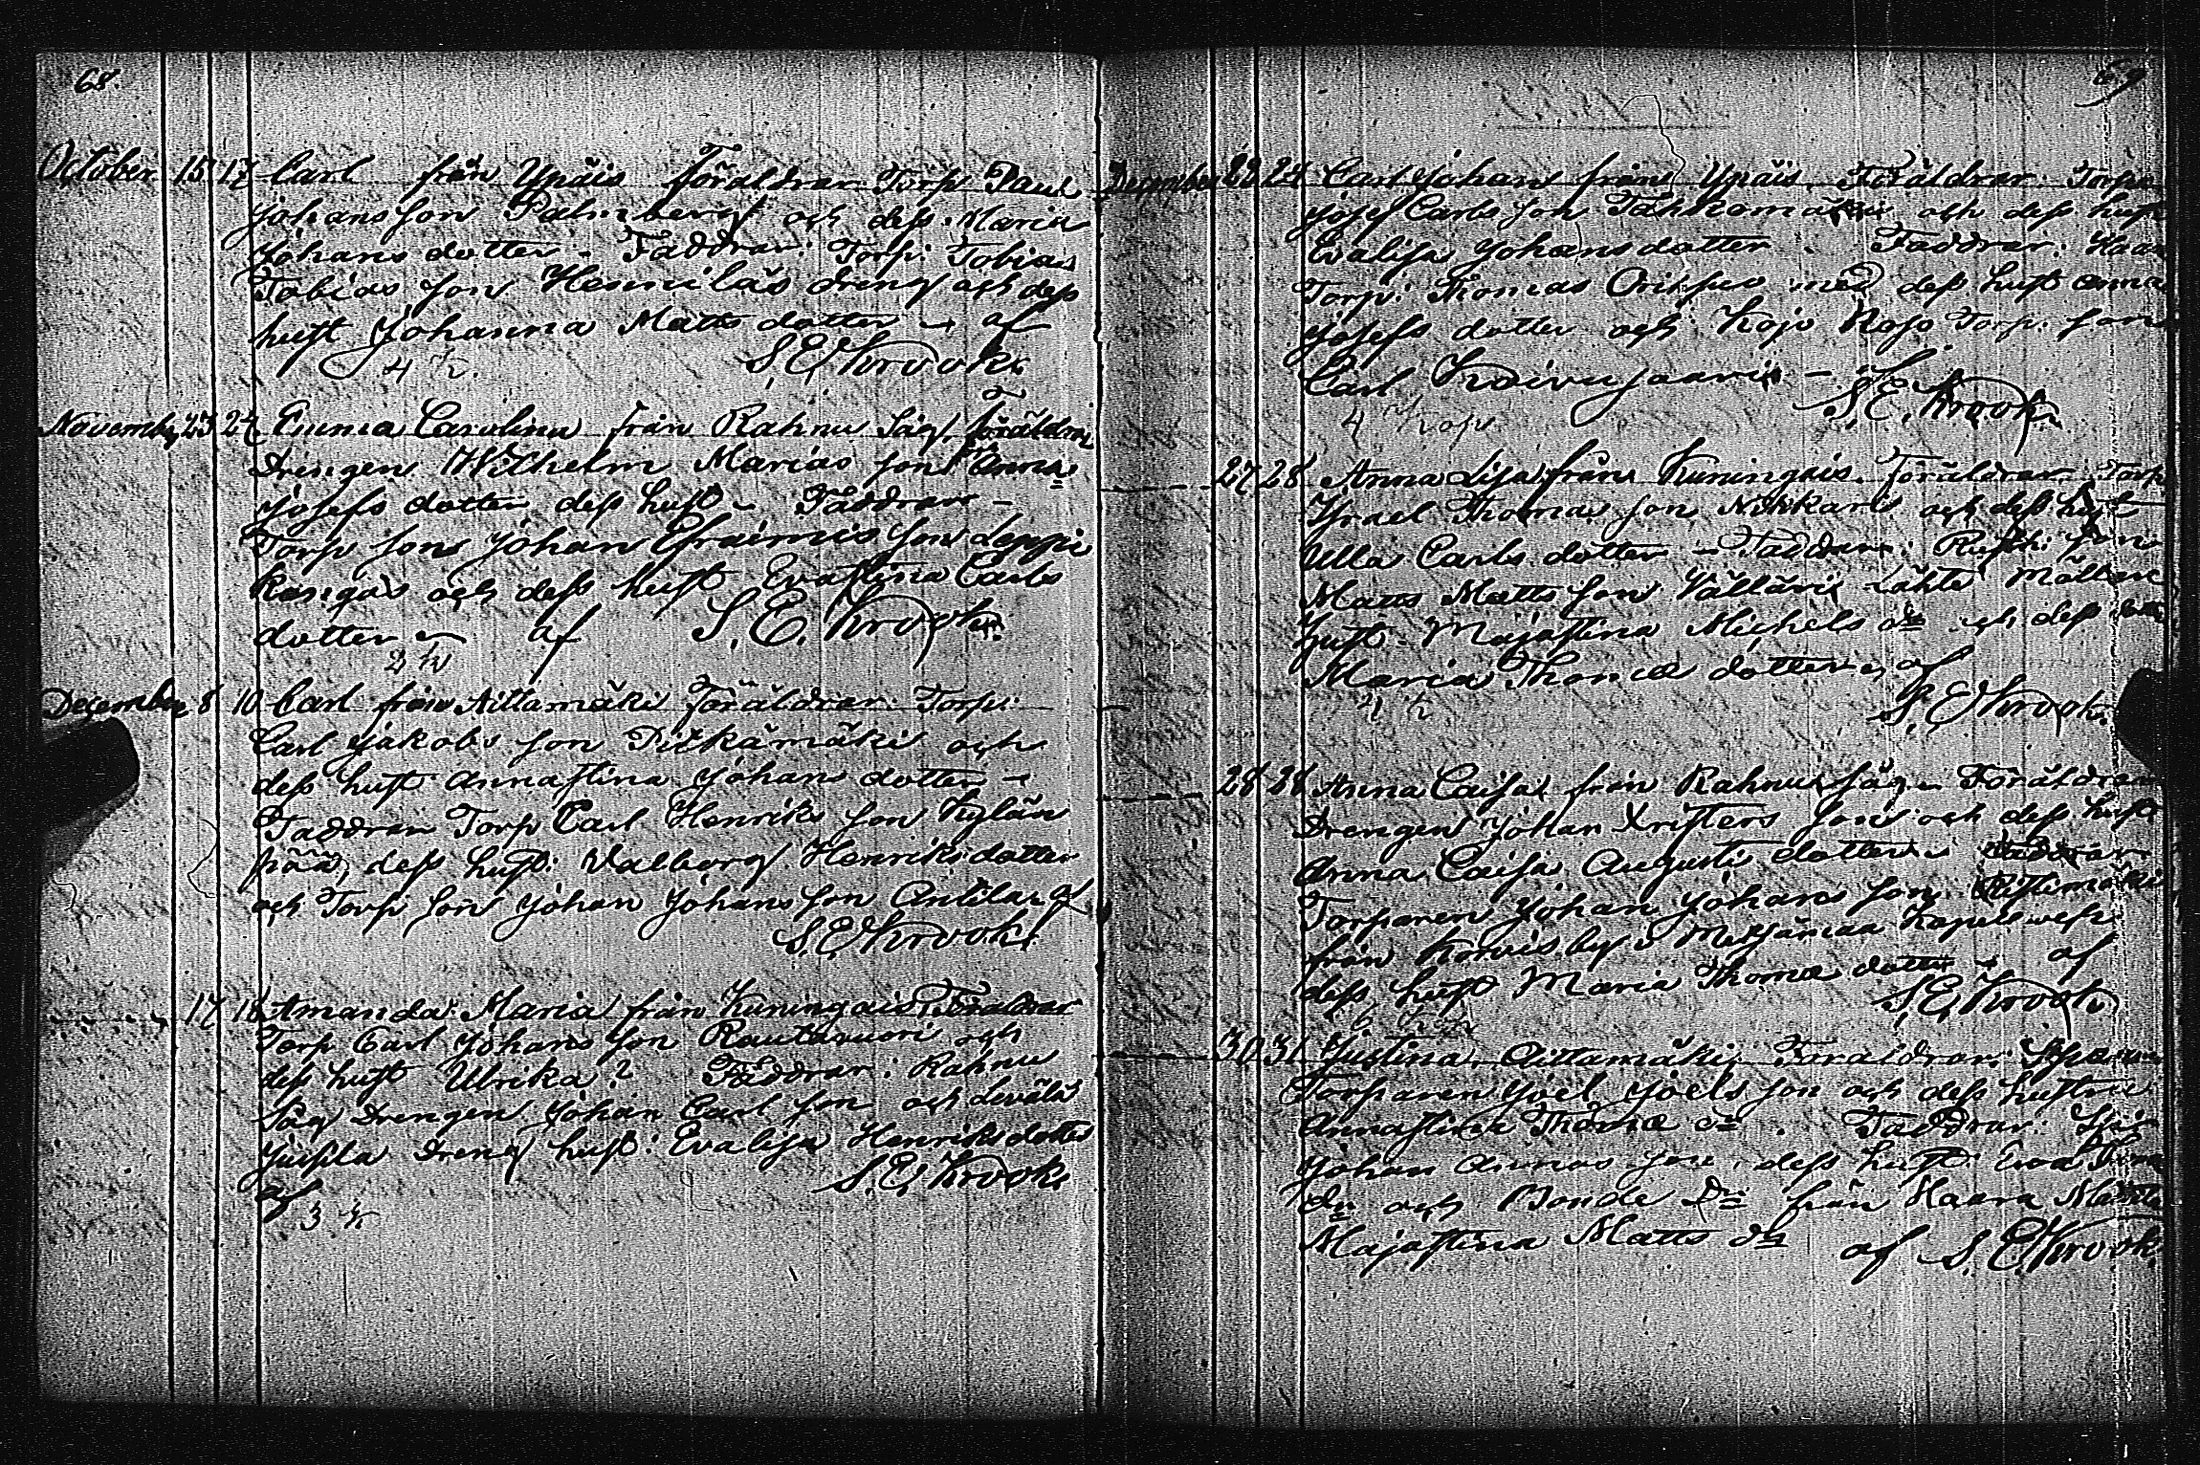 68.
October 15 17 Carl från Ypäis föräldrar Torp Paul
Johans son Palmberg och dess Maria
Johans dotter - Faddrar: Torp: Tobias
Tobias son Heinilās dreng och dess
hust Johanna Matts dotter - af
4 S. E. Krook.
November 23 24 Emma Carolina från Rahnu Såg, föräldrar
Drengen Wilhelm Marias son Anna
Josefs dotter dess hust - Faddrar -
Torp sons Johan Efraimis son Leppi
kangas och dess hust Evastina Carls
dotter - af S. E. Krook.
December 8 10 Carl från Aittamäki Föräldrar Torp:
Carl Jakobs son Pitkämäki och
dess hust Annastina Johans dotter -
Faddrar Torp Carl Henriks son Kylän
pää, dess hust: Valborg Henriks dotter
och Torp son Johan Johans son Antila af
S. E. Krook.
17 18 Amanda Maria från Kuningais Föräldrar
Torp Carl Johans son Rautavuori och
dess hust Ulrika? Faddrar: Rahnu
Såg Drengen Johan Carl son och Levälä
Jussila Dreng hust: Evalisa Henriks dotter
S. E. Krook.
af 3
69
December 22 24 Carl Johans från Ypäis Föräldrar: Torp
Josef Carls son Tahkomäki och dess hust
Evalisa Johans dotter Faddrar:
Torp: Thomas Orihpeo med dess hust Anna
Josefs dotter och Kojo Rojo Torp: son
Carl Koivujaari -
4 S. E. Krook.
27 28 Anna Lisa från Kuningais Föräldrar: Torp
Israel Thomas son Nikkari och dess hust
Ulla Carls dotter - Faddrar: son
Matts Matts son Vällāri
hust Majastina Michels dr och dess
Maria Thomæ dotter, af
4 S. E. Krook.
28 28 Anna Caisa från Rahnu såg - Föräldrar
Drengen Johan Kristers son och dess hust
Anna Caisa Augusti dotter - Faddrar
Torparen Johan Johans son
från Korvis by i Metsämaa Kapell
dess hust Maria Thomæ dotter - af
S. E. Krook
30 31 Justina Aittamäki Föräldrar:
Torparen Joel Joels son och dess hustru
Annastina Thomæ dr. Faddrar:
Johan son, dess hust: Eva
dr och Bonde Dr från Haara
Majastina Matts dr af S. E. Krook.